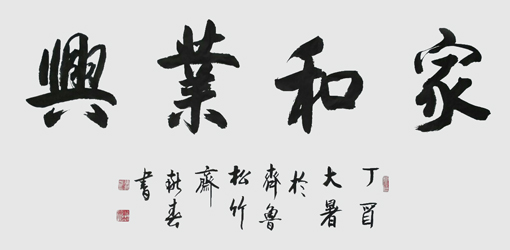 家和業興
丁酉
大暑
於
齊魯
松竹
齋
春
書